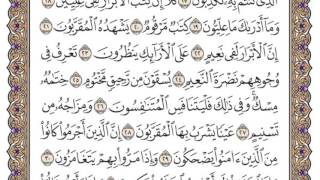 الَّذِى كُنتُم بِهِۦ تُكَذِّبُونَ ١٧ كَلَّآ إِنَّ كِتَٰبَ ٱلْأَبْرَارِ لَفِى عِلِّيِّينَ ١٨
وَمَآ أَدْرَىٰكَ مَا عِلِّيُّونَ ١٩ كِتَٰبٌ مَّرْقُومٌ ٢٠ يَشْهَدُهُ ٱلْمُقَرَّبُونَ ٢١
إِنَّ ٱلْأَبْرَارَ لَفِى نَعِيمٍ ٢٢ عَلَى ٱلْأَرَآئِكِ يَنظُرُونَ ٢٣ تَعْرِفُ فِى
وُجُوهِهِمْ نَضْرَةَ ٱلنَّعِيمِ ٢٤ يُسْقَوْنَ مِن رَّحِيقٍ مَّخْتُومٍ ٢٥ خِتَٰمُهُۥ
مِسْكٌ وَفِى ذَٰلِكَ فَلْيَتَنَافَسِ ٱلْمُتَنَٰفِسُونَ ٢٦ وَمِزَاجُهُۥ مِن
تَسْنِيمٍ ٢٧ عَيْنًا يَشْرَبُ بِهَا ٱلْمُقَرَّبُونَ ٢٨ إِنَّ ٱلَّذِينَ أَجْرَمُوا۟ كَانُوا۟
مِنَ ٱلَّذِينَ ءَامَنُوا۟ يَضْحَكُونَ ٢٩ وَإِذَا مَرُّوا۟ بِهِمْ يَتَغَامَزُونَ ٣٠